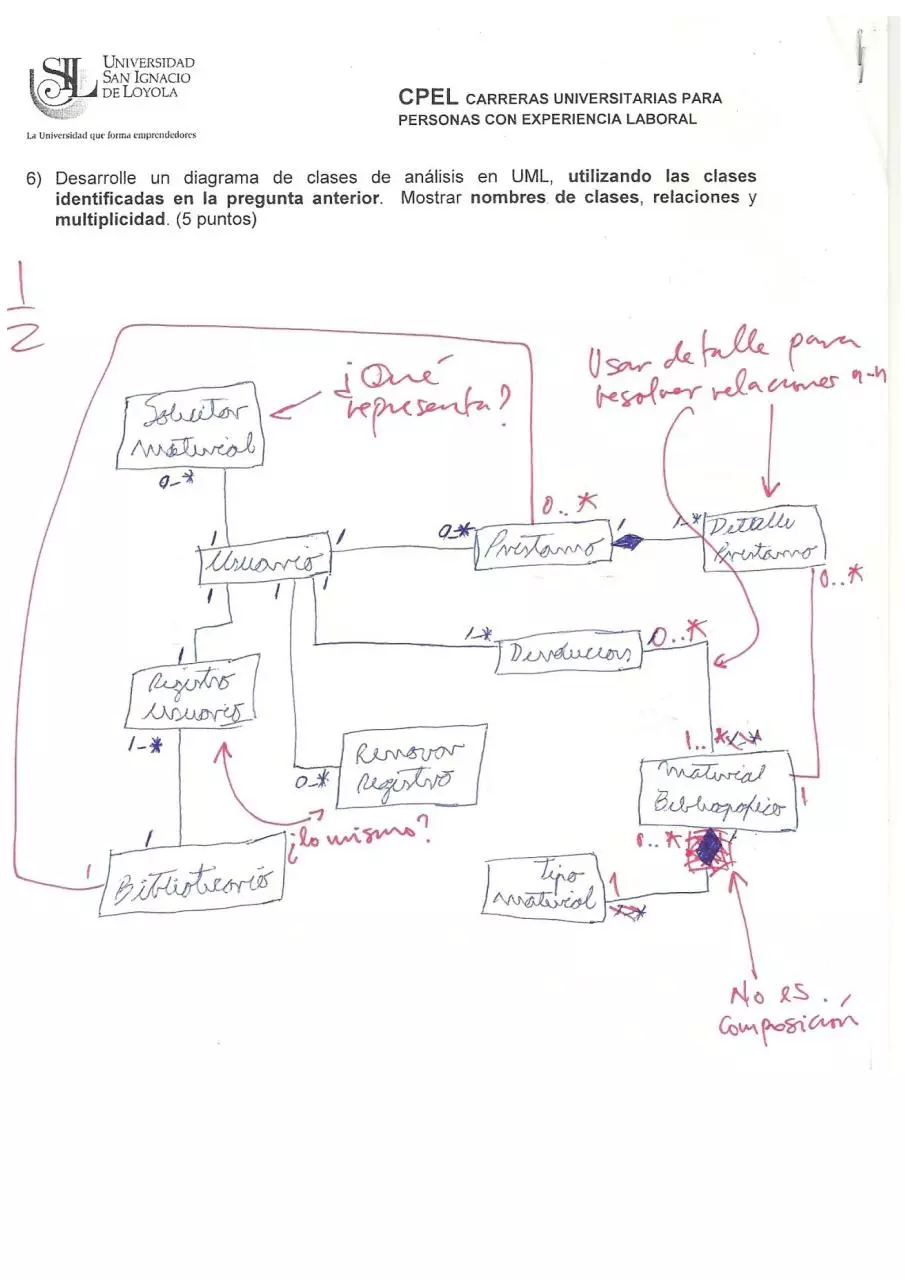 UNIVERSIDAD
SAN IGNACIO
DE LOYOLA
La Universidad que forma emprendedores
CPEL CARRERAS UNIVERSITARIAS PARA
PERSONAS CON EXPERIENCIA LABORAL
6) Desarrolle un diagrama de clases de análisis en UML, utilizando las clases
identificadas en la pregunta anterior. Mostrar nombres de clases, relaciones y
multiplicidad. (5 puntos)
1
2
Usar detalle para
resolver relaciones n-n
¿Qué
representa?
Solicitar
Material
0-*
0..*
1
1
0-*
Prestamo
1
1-*
Detalle
Prestamo
Usuario
0..*
1
1
1
1-*
Devolucion
0..*
1
Registro
Usuario
1-*
Renovar
Registro
0-*
1..*
Material
Bibliografico
1
¿lo mismo?
0..*
1
1
Bibliotecario
Tipo
Material
1
No es
composición